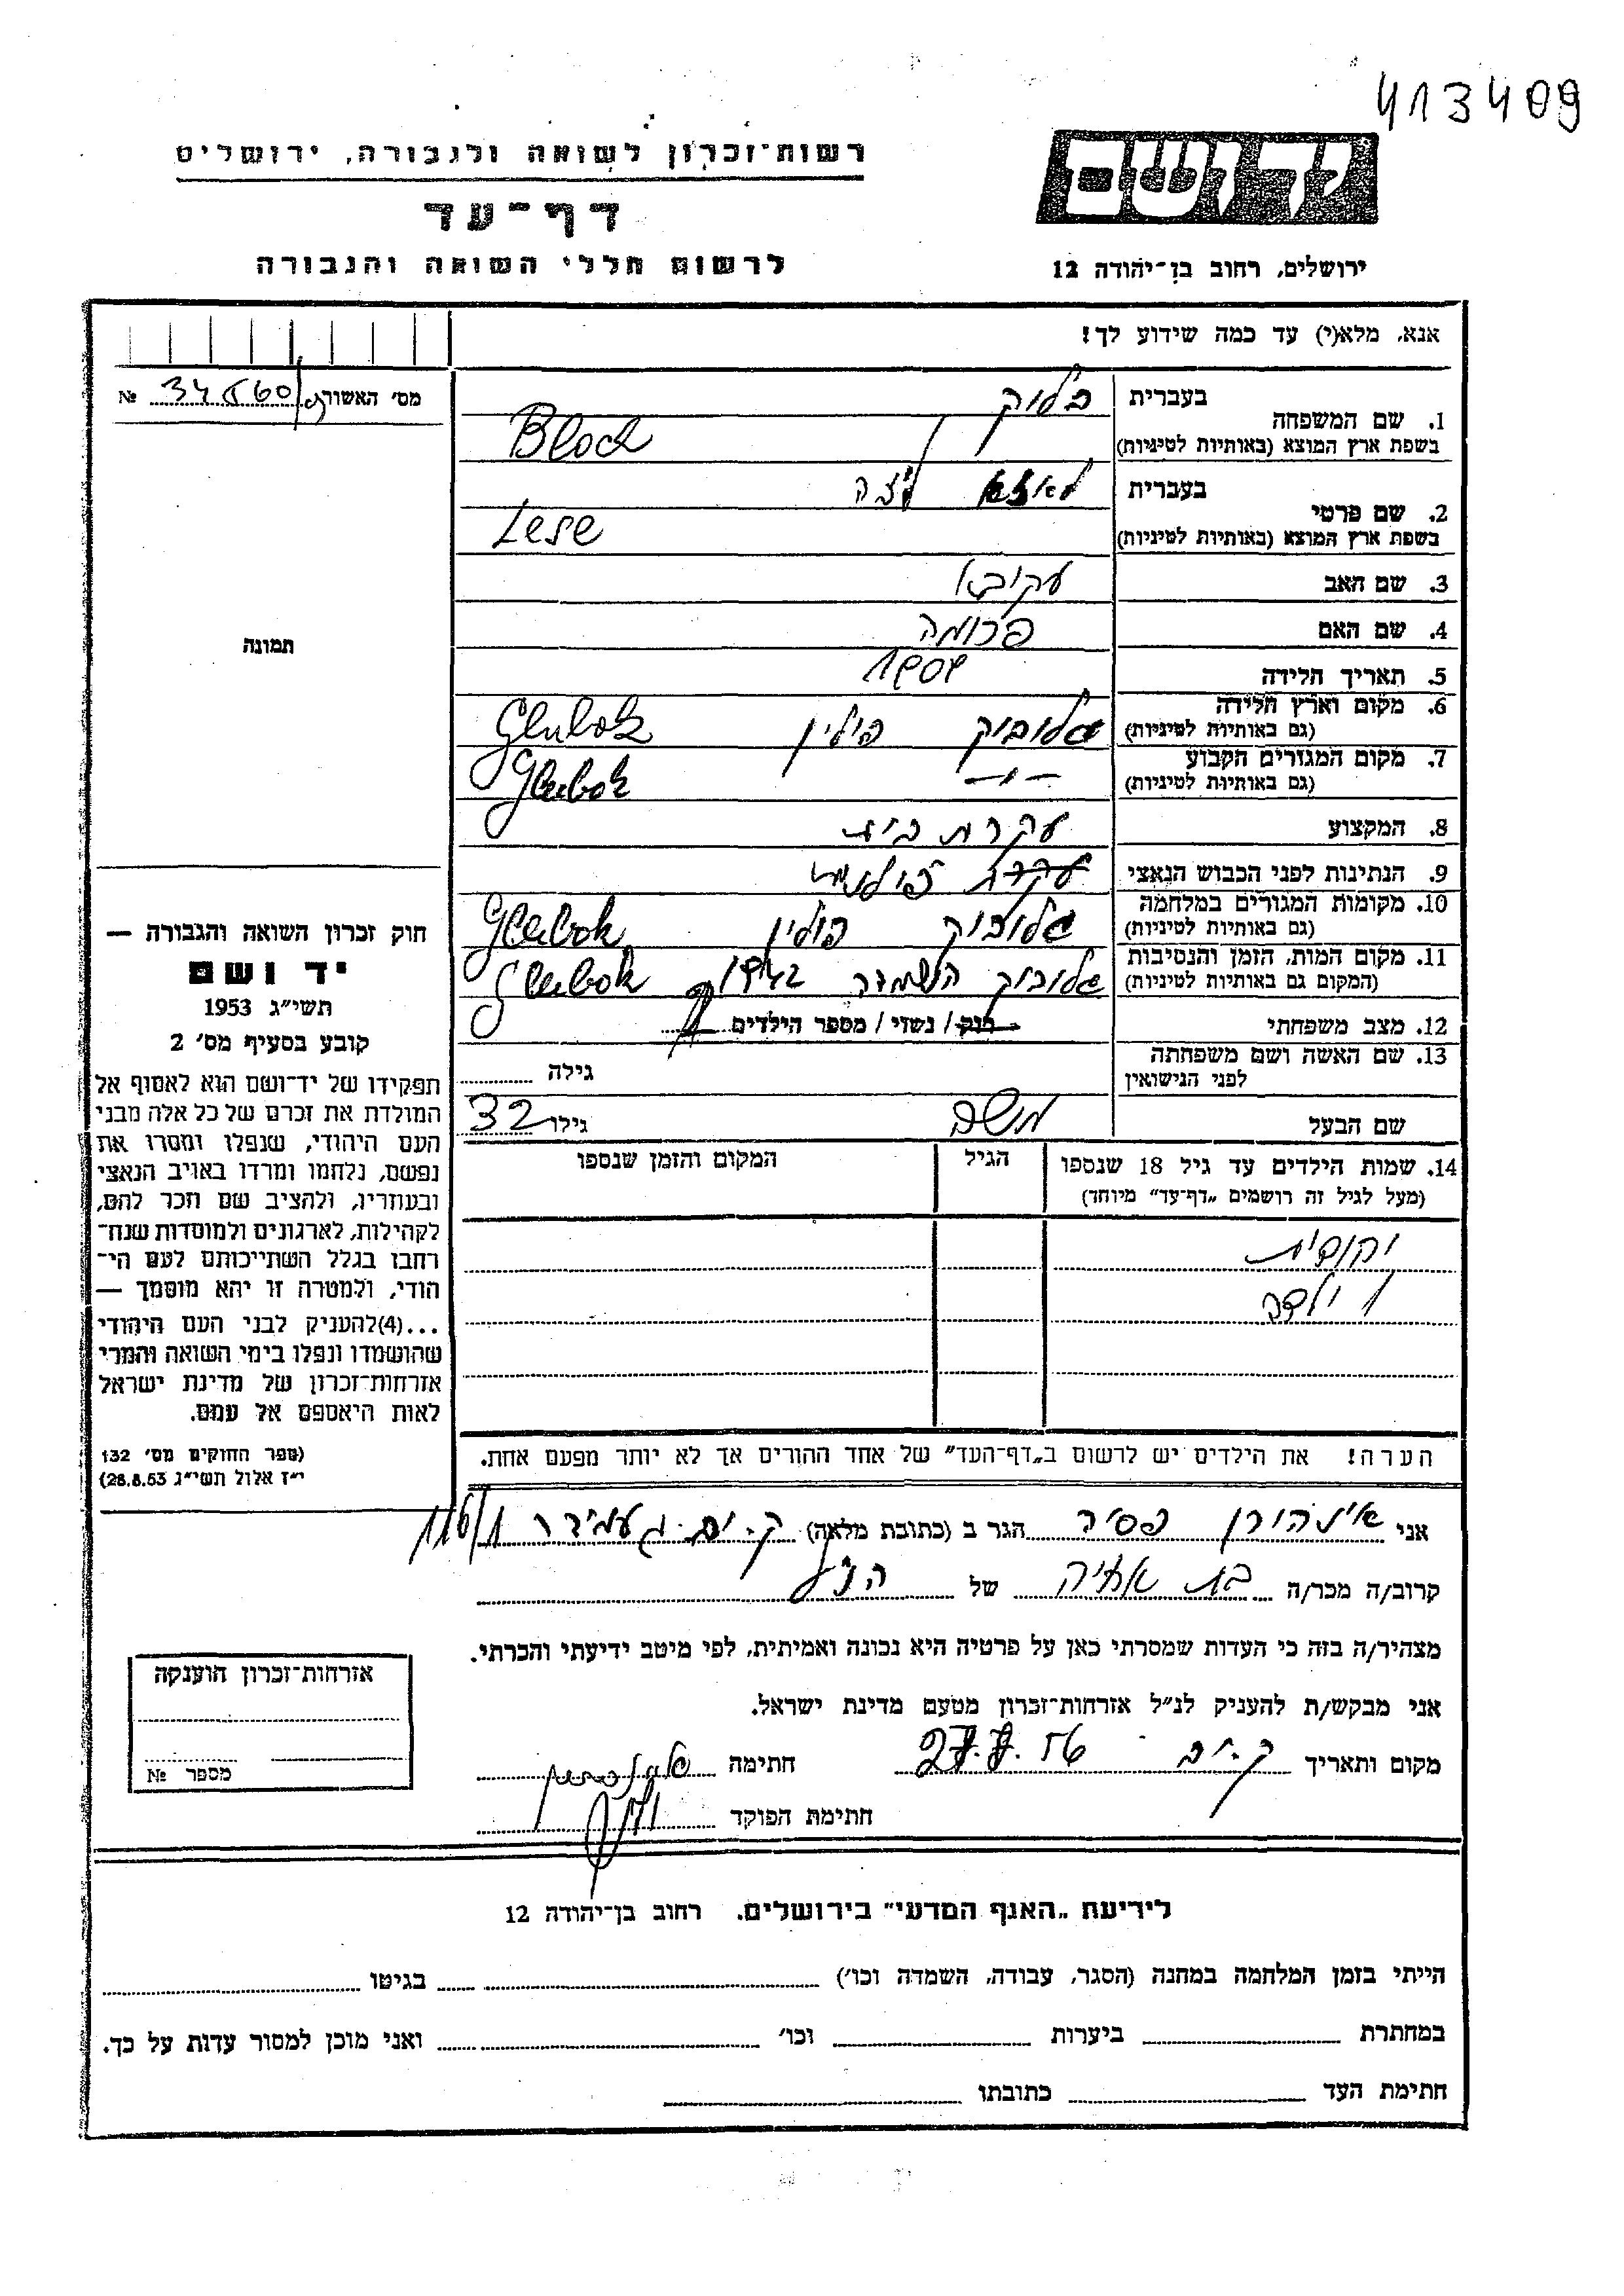 413409
רשות־זכרון לשואה ולגבורה, ירושלים
יד ושם
דף־עד
לרשום חללי השואה והגבורה
ירושלים, רחוב בן־יהודה 12
אנא, מלא(י) עד כמה שידוע לך!
מס׳ האשור № 34
1. שם המשפחה בעברית בלוק
בשפת ארץ המוצא (באותיות לטיניות) Block
2. שם פרטי בעברית ליזה
בשפת ארץ המוצא (באותיות לטיניות) Lese
3. שם האב עקיבא
4. שם האם פרומה
5. תאריך הלידה 1909
6. מקום וארץ הלידה גלובוק פולין Glubok
(גם באותיות לטיניות)
7. מקום המגורים הקבוע –״– Glubok
(גם באותיות לטיניות)
8. המקצוע עקרת בית
9. הנתינות לפני הכבוש הנאצי פולנית
10. מקומות המגורים במלחמה גלובוק פולין Glubok
(גם באותיות לטיניות)
11. מקום המות, הזמן והנסיבות גלובוק השמדה Glubok
(המקום גם באותיות לטיניות)
12. מצב משפחתי רווק / נשוי / מספר הילדים
13. שם האשה ושם משפחתה
לפני הנישואין גילה
שם הבעל משה גילו 32
14. שמות הילדים עד גיל 18 שנספו הגיל המקום והזמן שנספו
(מעל לגיל זה רושמים „דף־עד״ מיוחד)
יהודית
1 ילדה
הערה! את הילדים יש לרשום ב„דף־העד״ של אחד ההורים אך לא יותר מפעם אחת.
תמונה
חוק זכרון השואה והגבורה —
יד ושם
תשי״ג 1953
קובע בסעיף מס׳ 2
תפקידו של יד־ושם הוא לאסוף אל
המולדת את זכרם של כל אלה מבני
העם היהודי, שנפלו ומסרו את
נפשם, נלחמו ומרדו באויב הנאצי
ובעוזריו, ולהציב שם וזכר להם,
לקהילות, לארגונים ולמוסדות שנח־
רבו בגלל השתייכותם לעם הי־
הודי, ולמטרה זו יהא מוסמך —
...(4)להעניק לבני העם היהודי
שהושמדו ונפלו בימי השואה והמרי
אזרחות־זכרון של מדינת ישראל
לאות היאספם אל עמם.
(ספר החוקים מס׳ 132
י״ז אלול תשי״ג 28.8.53)
אני איינהורן פסיה הגר ב (כתובת מלאה) ק. ים. 116/1
קרוב/ה מכר/ה בת אחיה של הנ״ל
מצהיר/ה בזה כי העדות שמסרתי כאן על פרטיה היא נכונה ואמיתית, לפי מיטב ידיעתי והכרתי.
אני מבקש/ת להעניק לנ״ל אזרחות־זכרון מטעם מדינת ישראל.
מקום ותאריך ק. ים 27.7.56 חתימה
חתימת הפוקד
אזרחות־זכרון הוענקה
מספר №
לידיעת „האגף המדעי״ בירושלים. רחוב בן־יהודה 12
הייתי בזמן המלחמה במחנה (הסגר, עבודה, השמדה וכו׳) בגיטו
במחתרת ביערות וכו׳ ואני מוכן למסור עדות על כך.
חתימת העד כתובתו